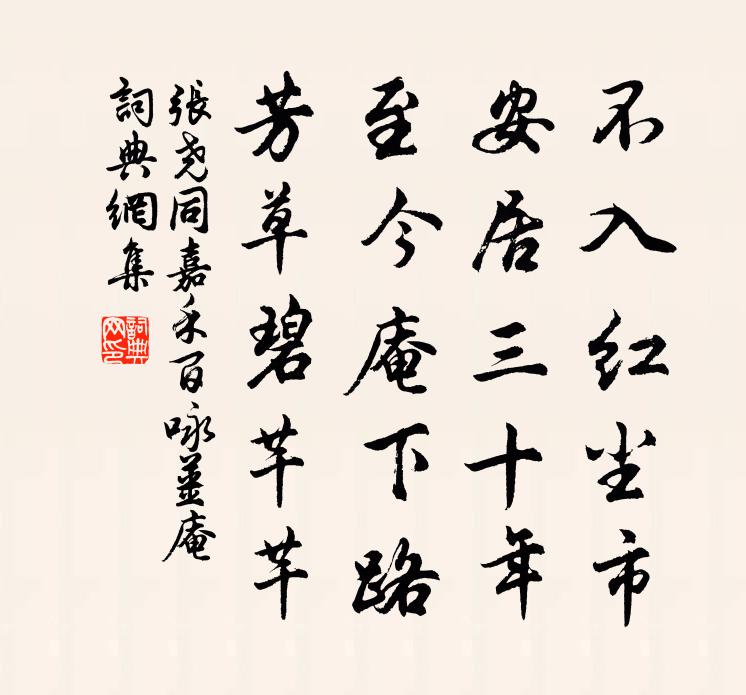 不入红尘市
安居三十年
至今庵下路
芳草碧芊芊
張尧同嘉禾百咏薑庵
詞典網集
詞典网印